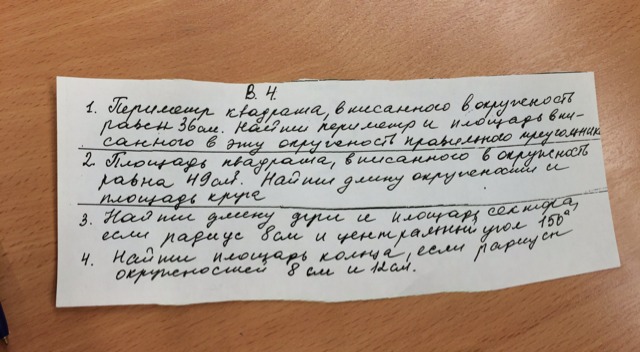 В. 4.
1. Периметр квадрата, вписанного в окружность
равен 36 см. Найти периметр и площадь впи-
санного в эту окружность правильного треугольника
2. Площадь квадрата, вписанного в окружность
равна 49 см². Найти длину окружности и
площадь круга
3. Найти длину дуги и площадь сектора,
если радиус 8 см и центральный угол 150°
4. Найти площадь кольца, если радиусы
окружностей 8 см и 12 см.